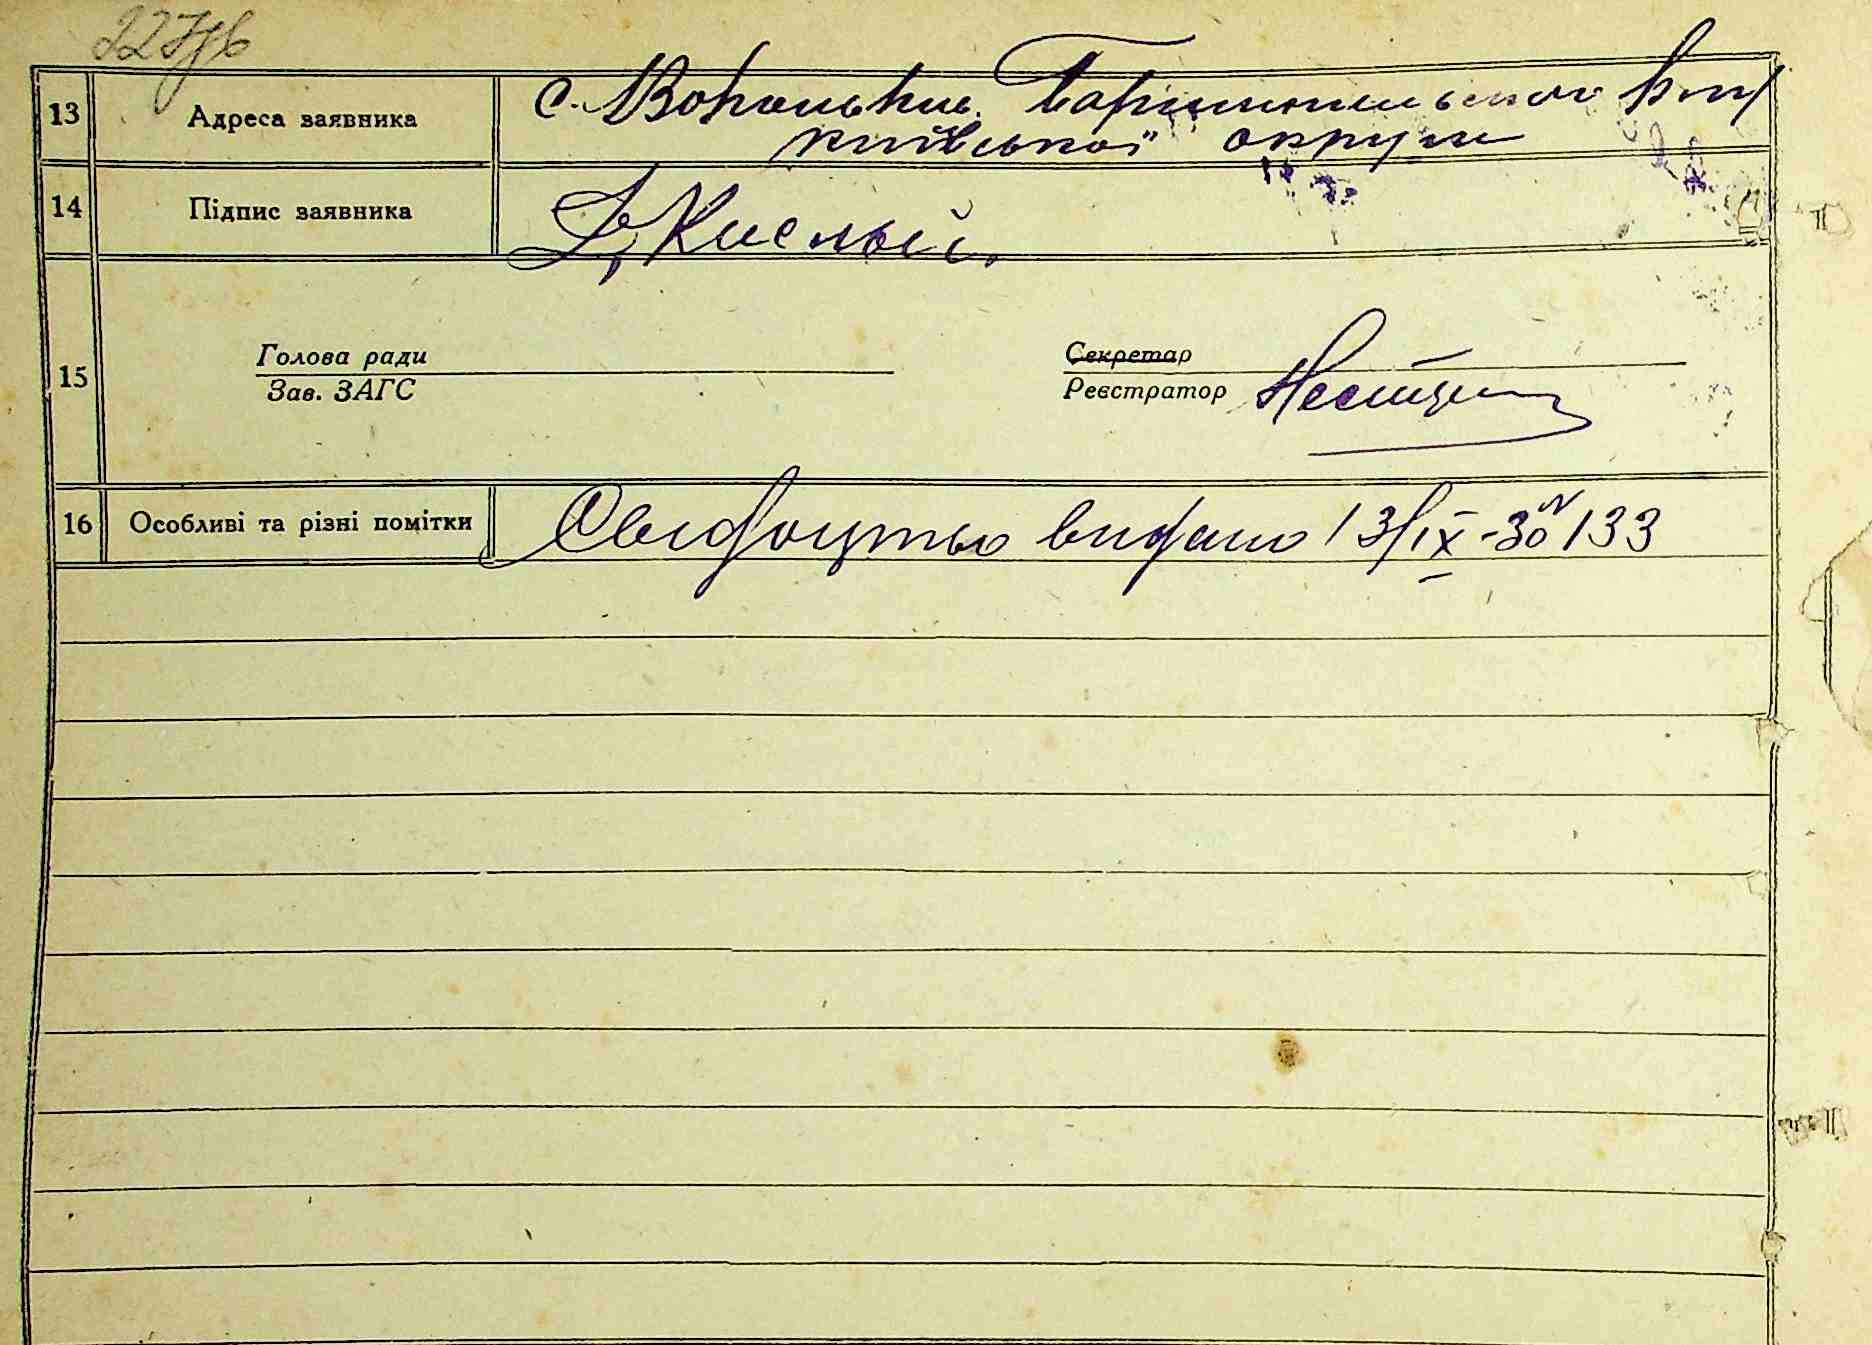 227зв
13 Адреса заявника с. Вороньків Баришпільського р-ну
київської округи
14 Підпис заявника Д. Кислый.
Голова ради Секретар
15
Зав. ЗАГС Реєстратор
16 Особливі та різні помітки Свідоцтво видано 13/IX-30 № 133